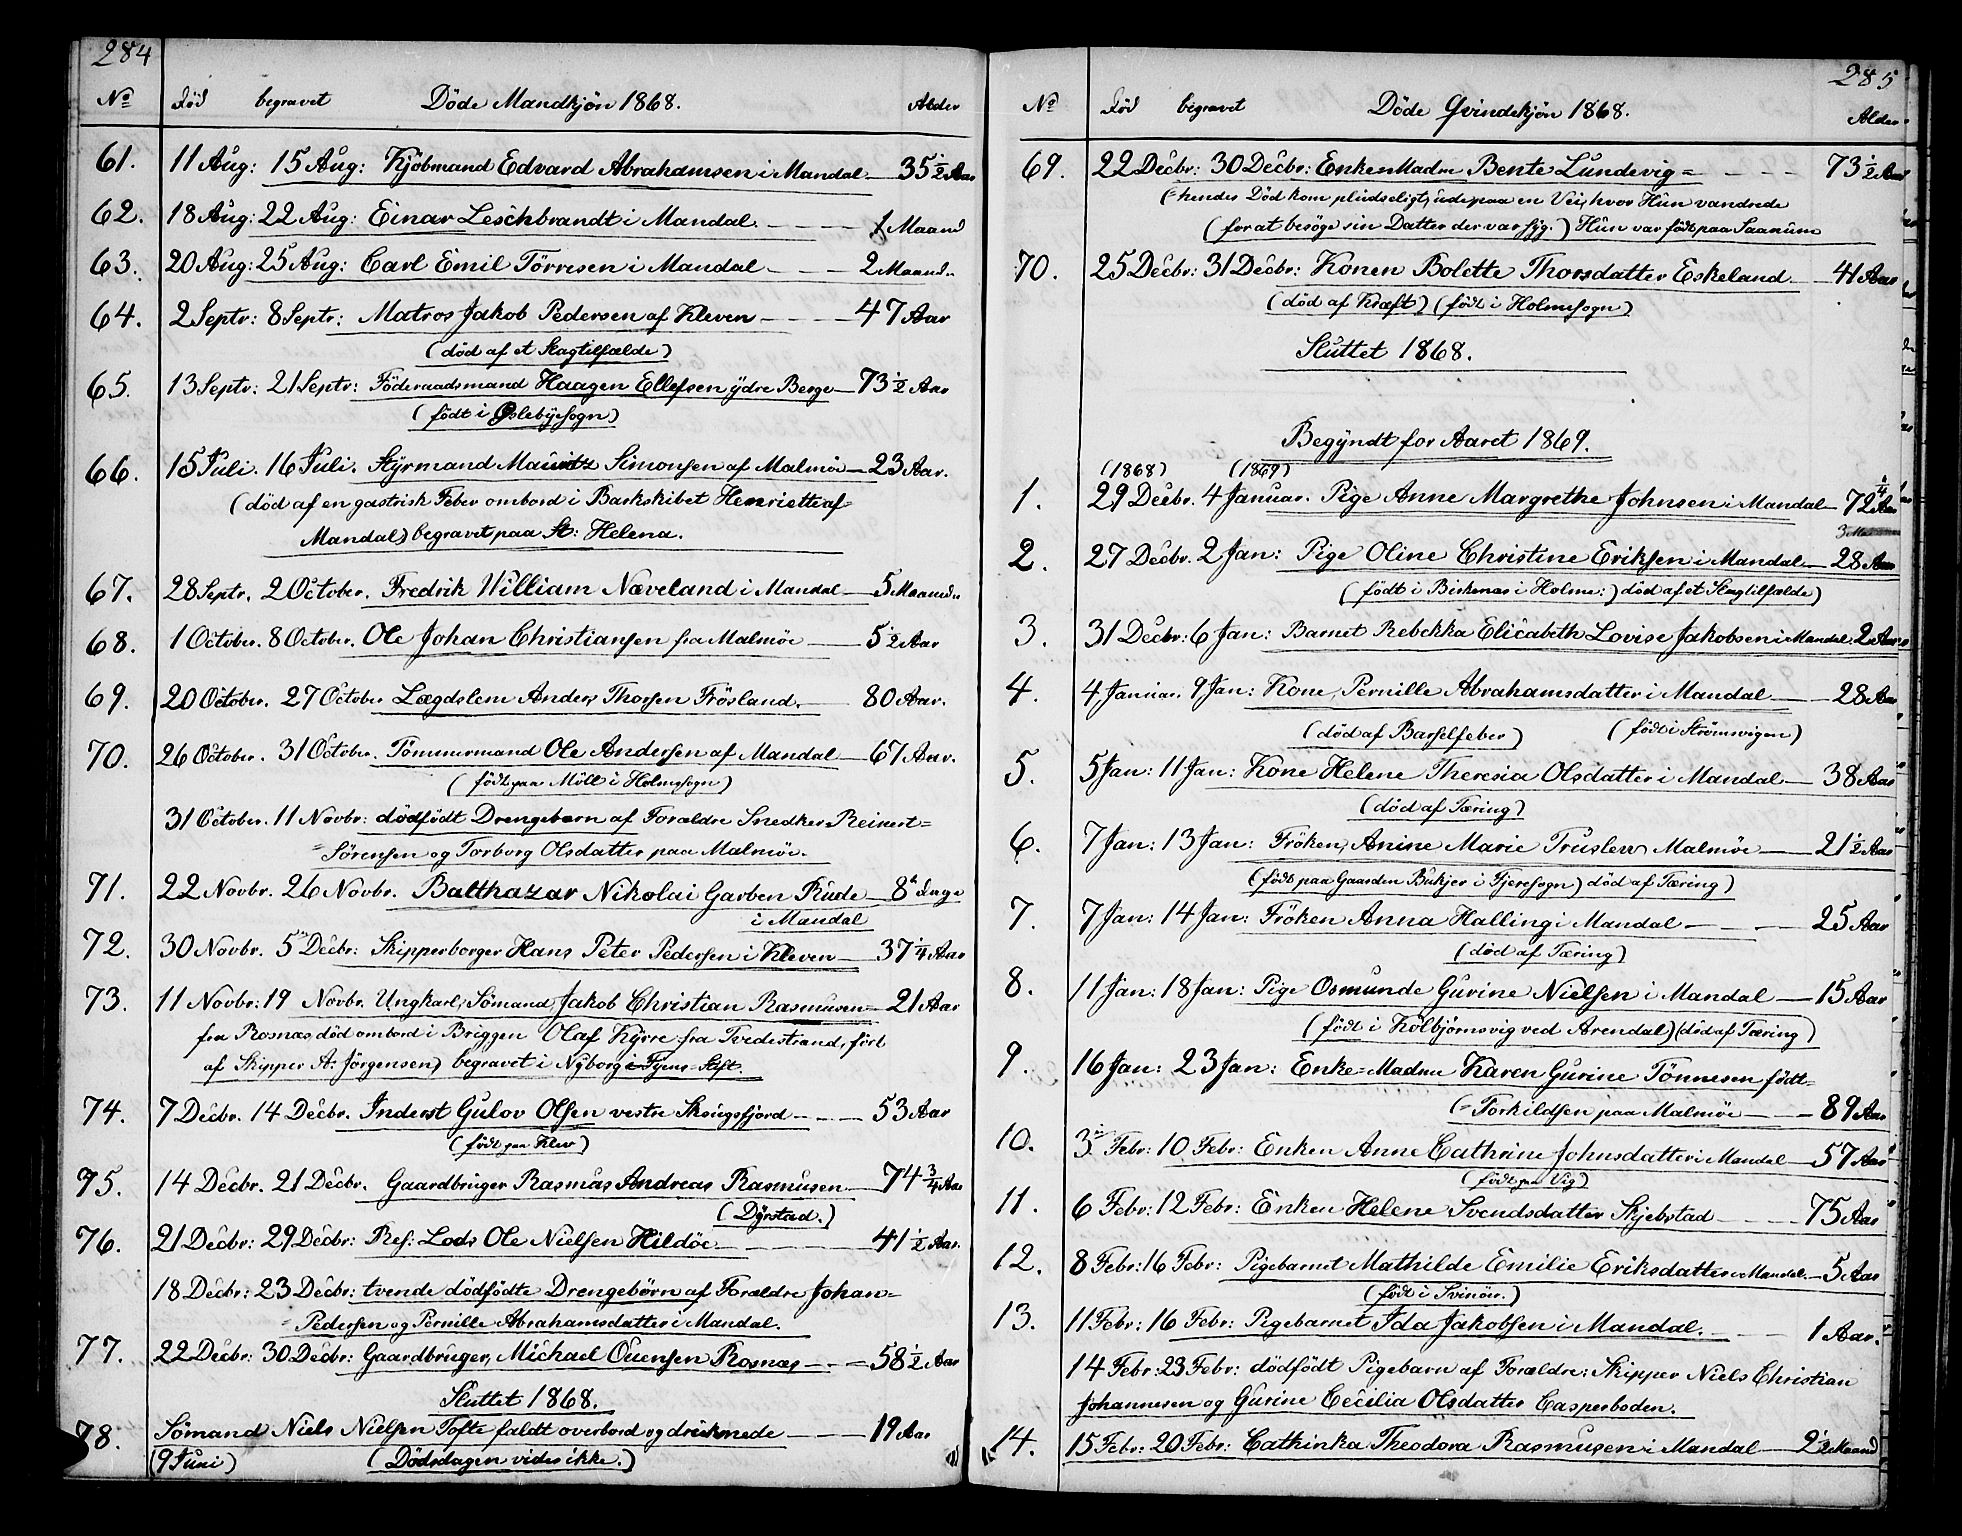 284
No død begravet Döde Mandkjön 1868. Alder
61. 11 Aug: 15 Aug: Kjöbmand Edvard Abrahamsen i Mandal 35 1/2 Aar
62. 18 Aug: 22 Aug: Einar Leschbrandt i Mandal. 1 Maaned
63. 20 Aug: 25 Aug: Carl Emil Törresen i Mandal 2 Maand..
64. 2 Septr: 8 Septr: Matros Jakob Pedersen af Kleven 47 Aar
(död af et Slagtilfælde)
65. 13 Septr: 21 Septr: Föderaadsmand Haagen Ellefsen ÿdre Berge 73 1/2 Aar
(födt i Öslebÿsogn)
66. 15 Juli. 16 Juli. Stÿrmand Mauritz Simonsen af Malmöe 23 Aar.
(död af en gastrisk Feber ombord i Barkskibet Henriette af=
Mandal) begravet paa St: Helena.
67. 28 Septr. 2 October. Fredrik William Næveland i Mandal 5 Maaned..
68. 1 October. 8 October. Ole Johan Christiansen fra Malmöe 5 1/2 Aar
69. 20 October. 27 October Lægdslem Anders Thorsen Frösland. 80 Aar.
70. 26 October. 31 October. Tömmermand Ole Andersen af Mandal 67 Aar.
(födt paa Möll i Holmesogn)
31 October. 11 Novbr: dödfödt Drengebarn af Forældre Snedker Reinert=
=Sörensen og Torborg Olsdatter paa Malmöe.
71. 22 Novbr. 26 Novbr. Balthazar Nikolai Garben Rude 8 Dage
i Mandal
72. 30 Novbr. 5 Decbr: Skipperborger Hans Peter Pedersen i Kleven 37 1/4 Aar
73. 11 Novbr: 19 Novbr. Ungkarl, Sömand Jakob Christian Rasmusen= 21 Aar
fra Rosnæs död ombord i Briggen Olaf Kÿrre fra Tvedestrand, fört
af Skipper A: Jörgensen) begravet i Nÿborg i Fyens Stift.
74. 7 Decbr. 14 Decbr. Inderst Gulov Olsen vestre Skougsfjord 53 Aar
(födt paa Klev)
75. 14 Decbr. 21 Decbr. Gaardbruger Rasmus Andreas Rasmusen 74 3/4 Aar
(Dÿrstad.)
76. 21 Decbr: 29 Decbr: Res: Lods Ole Nielsen Hildöe 41 1/2 Aar.
18 Decbr: 23 Decbr: tvende dödfödte Drengebörn af Forældre Johan=
=Pedersen og Pernille Abrahamsdatter i Mandal.
77. 22 Decbr: 30 Decbr: Gaardbruger, Michael Ouensen Rosnæs 58 1/2 Aar
Sluttet 1868.
78. Sömand Niels Nielsen Tofte faldt overbord og druknede 19 Aar
(9 Juni) (Dödsdagen vides ikke.)
285
No Död begravet Döde Qvindekjön 1868. Alder
69. 22 Decbr: 30 Decbr: Enken Madm Bente Lundevig= 73 1/2 Aar
(=hendes Död kom pludseligt, ude paa en Vei, hvor Hun vandrede
(for at besöge sin Datter der var syg.) Hun var födt paa Saanum
70. 25 Decbr: 31 Decbr: Konen Bolette Thorsdatter Eskeland 41 Aar
(död af Kræft) (födt i Holmesogn)
Sluttet 1868.
Begÿndt for Aaret 1869.
(1868) (1869)
1. 29 Decbr. 4 Januar. Pige Anne Margrethe Johnsen i Mandal 72 1/4 Aar
2. 27 Decbr. 2 Jan: Pige Oline Christine Eriksen i Mandal 28 Aar
(födt i Birkenes i Holme:) död af et Slagtilfælde)
3. 31 Decbr: 6 Jan: Barnet Rebekka Elisabeth Lovise Jakobsen i Mandal. 2 Aar
4. 4 Januar. 9 Jan: Kone, Pernille Abrahamsdatter i Mandal 28 Aar
(död af Barselfeber) (födt i Strömsvigen)
5. 5 Jan: 11 Jan: Kone Helene Theresia Olsdatter i Mandal 38 Aar
(död af Tæring)
6. 7 Jan: 13 Jan: Fröken, Anine Marie Truslew Malmöe 21 1/2 Aar
(födt paa Gaarden Bukjer i Fjeresogn) död af Tæring)
7. 7 Jan: 14 Jan: Fröken Anna Halling i Mandal 25 Aar
(död af Tæring)
8. 11 Jan: 18 Jan: Pige Osmunde Gurine Nielsen i Mandal 15 Aar
(födt i Kolbjörnsvig ved Arendal) (död af Tæring)
9. 16 Jan: 23 Jan: Enke=Madme Karen Gurine Tönnesen födt=
(=Torkildsen paa Malmöe 89 Aar
10. 3 Febr: 10 Febr: Enken Anne Cathrine Johnsdatter i Mandal 57 Aar
(födt paa Vig)
11. 6 Febr: 12 Febr: Enken Helene Svendsdatter Skjebstad 75 Aar
12. 8 Febr: 16 Febr: Pigebarnet Mathilde Emilie Eriksdatter i Mandal. 5 Aar
(födt i Svinör.)
13. 11 Febr: 16 Febr: Pigebarnet Ida Jakobsen i Mandal. 1 Aar.
14 Febr: 23 Febr: dödfödt Pigebarn af Forældre: Skipper Niels Christian
Johannesen og Gurine Cecilia Olsdatter Casperboden.
14. 15 Febr: 20 Febr: Cathinka Theodora Rasmusen i Mandal 2 1/2 Maaned